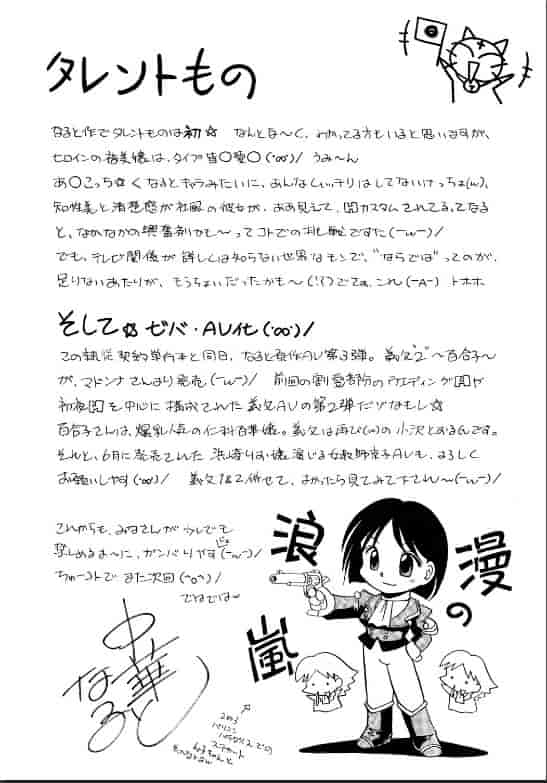 タレントもの
なると作でタレントものは初☆ なんとな〜く、わかってる方もいると思いますが、
ヒロインの裕美嬢は、タイプ皆○愛○(・∞・)/ うみ〜ん
あ○こっち☆くなるとキャラみたいに、あんなくっきりはしてないけっちょ(ω)、
知性美と清想感が社服の彼女が、ああ見えて、調カスタムされてるってなる
と、なかなかの興奮剤かも〜ってコトでの挑戦ですた(ーωー)/
でも、テレビ関係が詳しくは知らない世界なモンで、"ならでは"ってのが、
足りないあたりが、もうちょいだったかも〜 これ(ーAー) トホホ
そして☆ゼバ・AV化(・∞・)/
この執従契約単行本と同日、なると原作AV第3弾。義父2〜百合子〜
が、マドンナさんより発売(ーωー)/ 前回の割愛箇所のウエディング
初夜 を中心に構成された義父AVの第2弾だゾなもし☆
百合子さんは、爆乳人気の仁科百華嬢。義父は再び(ω)の小沢とおるんです。
それと、6月に発売された浜崎りお嬢演じる女教師京子AVも、よろしく
お願いしやす(・∞・)/ 義父1&2併せて、よかったら見てみて下され〜(ーωー)/
これからも、みなさんが少しでも
楽しめるよ〜に、ガンバりやす(ーωー)/
ちゅーコトでまた次回(^o^)/
でわでわ〜
浪漫の嵐
中華なると